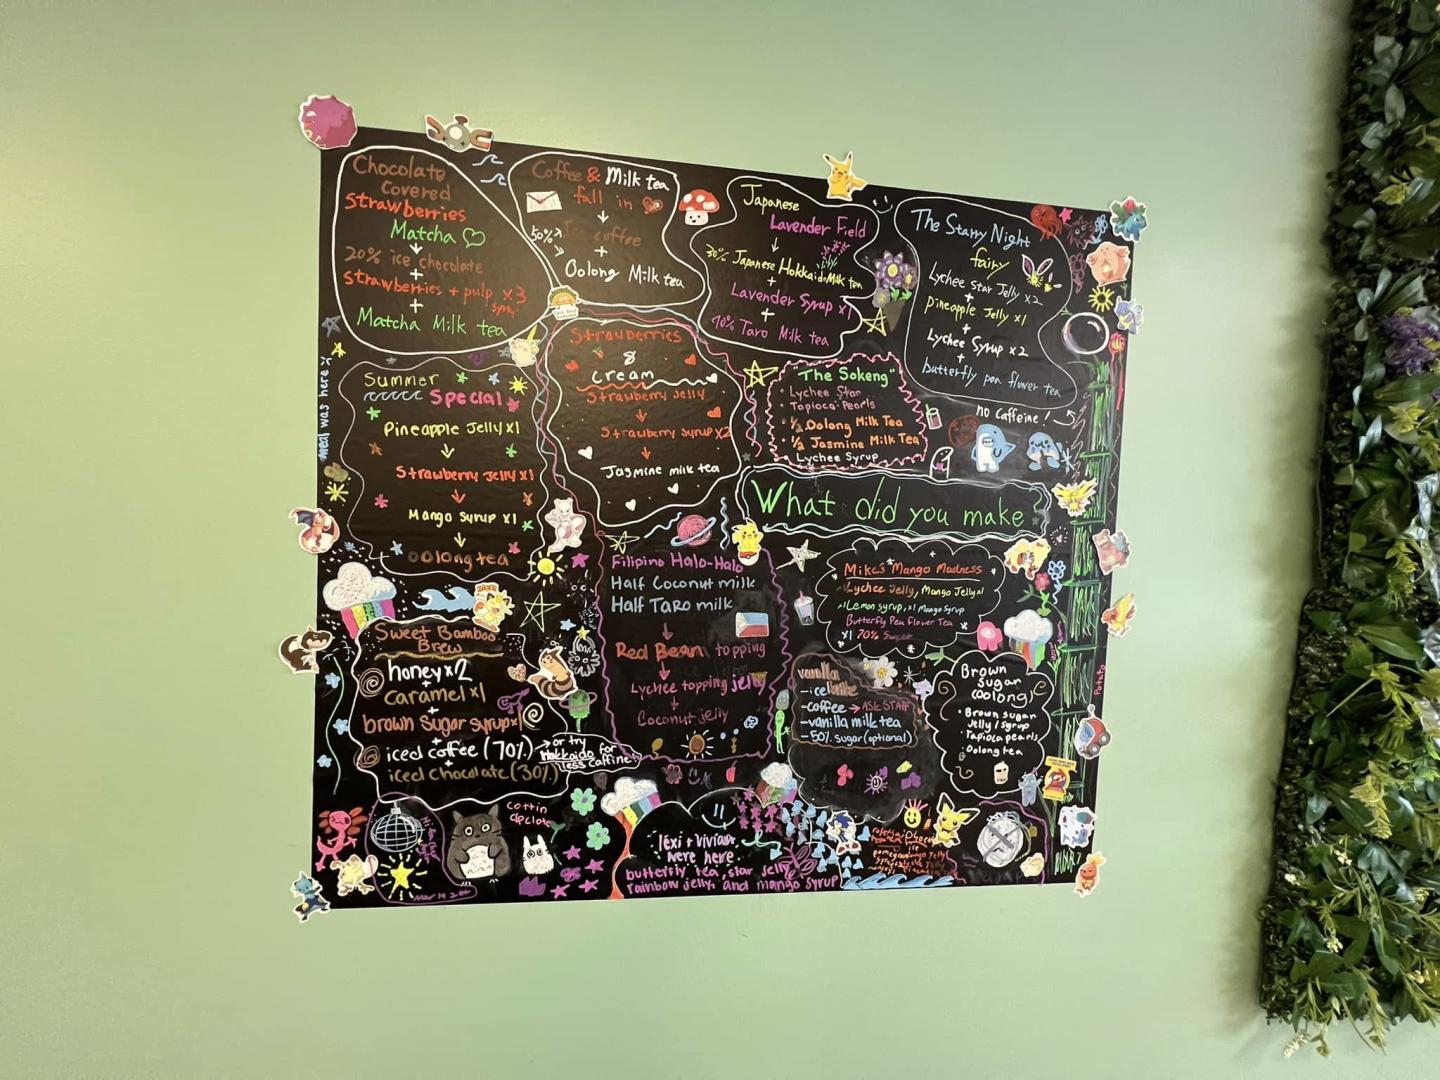 Chocolate
Covered
Strawberries
Matcha
20% ice chocolate
+
strawberries + pulp x3
syrup
+
Matcha Milk tea
Coffee & Milk tea
fall in
50%
Ice coffee
+
Oolong Milk tea
Japanese
Lavender Field
30% Japanese Hokkaido Milk tea
+
Lavender Syrup x1
+
70% Taro Milk tea
The Starry Night
fairy
Lychee star Jelly x2
+
Pineapple Jelly x1
+
Lychee Syrup x2
+
butterfly pea flower tea
no caffeine!
meal was here
Summer
Special
Pineapple Jelly x1
Strawberry Jelly x1
Mango syrup x1
oolong tea
Strawberries
&
cream
Strawberry Jelly
Strawberry syrup x2
Jasmine milk tea
"The Sokeng"
• Lychee Star
• Tapioca Pearls
• 1/2 Oolong Milk Tea
• 1/2 Jasmine Milk Tea
• Lychee Syrup
What did you make?
Filipino Halo-Halo
Half Coconut milk
Half Taro milk
Red Bean topping
Lychee topping jelly
Coconut jelly
Mike's Mango Madness
Lychee Jelly, Mango Jelly x1
x1 Lemon syrup, x1 Mango Syrup
Butterfly Pea Flower Tea
x1 70% Sugar
Sweet Bamboo
Brew
honey x2
+
caramel x1
+
brown sugar syrup x1
+
iced coffee (70%)
+
iced chocolate (30%)
or try
Hokkaido for
less caffine!
vanilla
- ice
- coffee → ASK STAFF
- vanilla milk tea
- 50% sugar (optional)
Brown
Sugar
(oolong)
• Brown sugar
Jelly / syrup
• Tapioca pearls
• Oolong tea
Potato
cottin
lexi + vivian
were here
butterfly tea, star jelly
rainbow jelly, and mango syrup